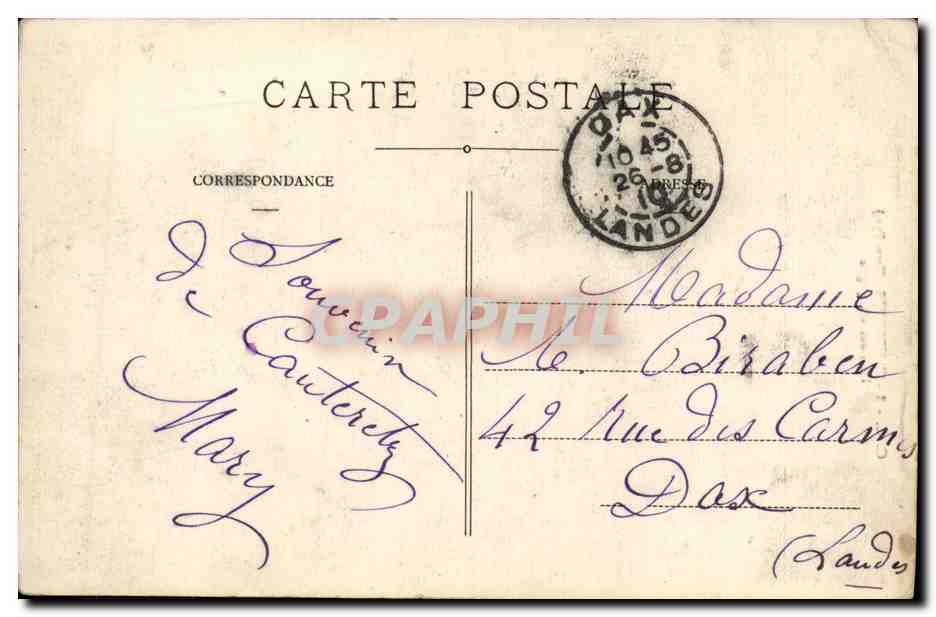 CARTE POSTALE
CORRESPONDANCE
ADRESSE
DAX
10 45
26 - 8
10
LANDES
Souvenir
de Cauteretz
Mary
Madame
M. Biraben
42 Rue des Carmes
Dax
(Landes
CPAPHIL